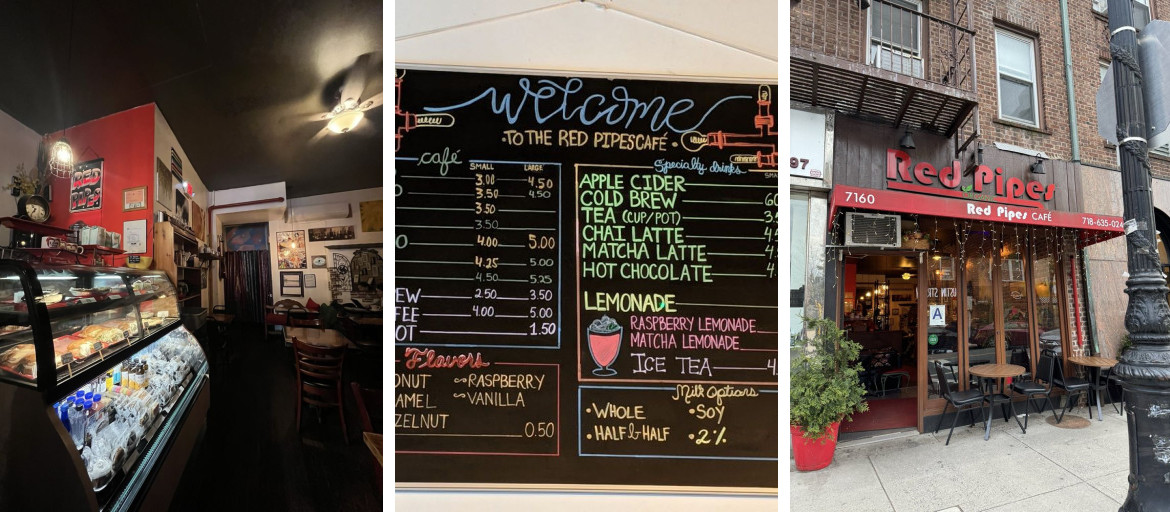 RED
PIPE
Welcome
TO THE RED PIPES CAFÉ
café
SMALL
LARGE
3.00 4.50
3.50 4.50
3.50
3.50
4.00 5.00
4.25 5.00
4.50 5.25
EW 2.50 3.50
FEE 4.00 5.00
OT 1.50
Flavors
ONUT RASPBERRY
AMEL VANILLA
ZELNUT
0.50
Specialty drinks
SMA
APPLE CIDER
COLD BREW
TEA (CUP/POT)
CHAI LATTE
MATCHA LATTE
HOT CHOCOLATE
LEMONADE
RASPBERRY LEMONADE
MATCHA LEMONADE
ICE TEA 4.
Milk Options
•WHOLE •SOY
•HALF & HALF •2%
97
Red Pipes
7160 Red Pipes CAFÉ 718-635-024
A